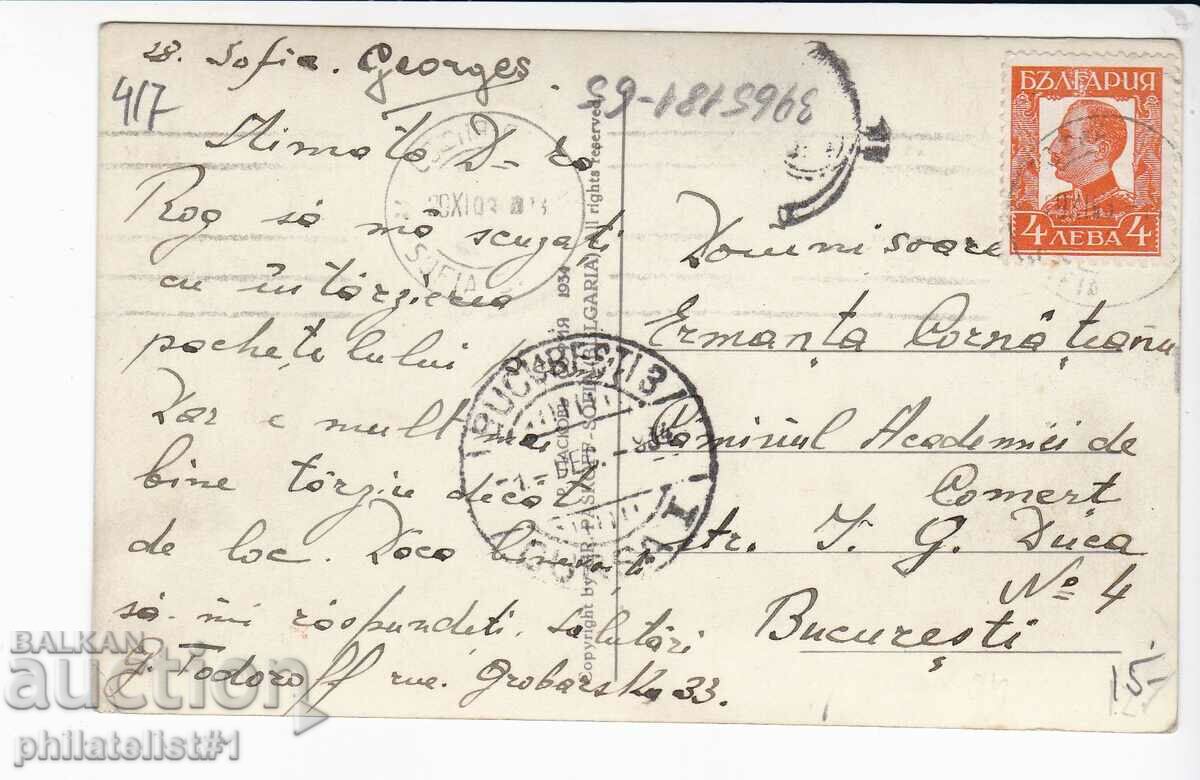 28. Sofia. Georges.
4/7
3965181-65
Stimată D-ră
Rog să mă scuzați
cu întârzierea
pachetului
Dar e mult mai
bine târziu decât
de loc. Dacă
să-mi răspundeți. Salutări
G. Todoroff rue. Grobarska 33.
БЪЛГАРИЯ
4 ЛЕВА 4
SOFIA
T
Copyright by GR. PASKOFF-SOFIA (BULGARIA) All rights reserved
1934
BUCUREȘTI 3
1 - DEC. - 934
Domnisoare
Ermanța Cornățeanu
Căminul Academiei de
Comert
str. I. G. Duca
No 4
București
15-
BALKAN
auction
philatelist#1